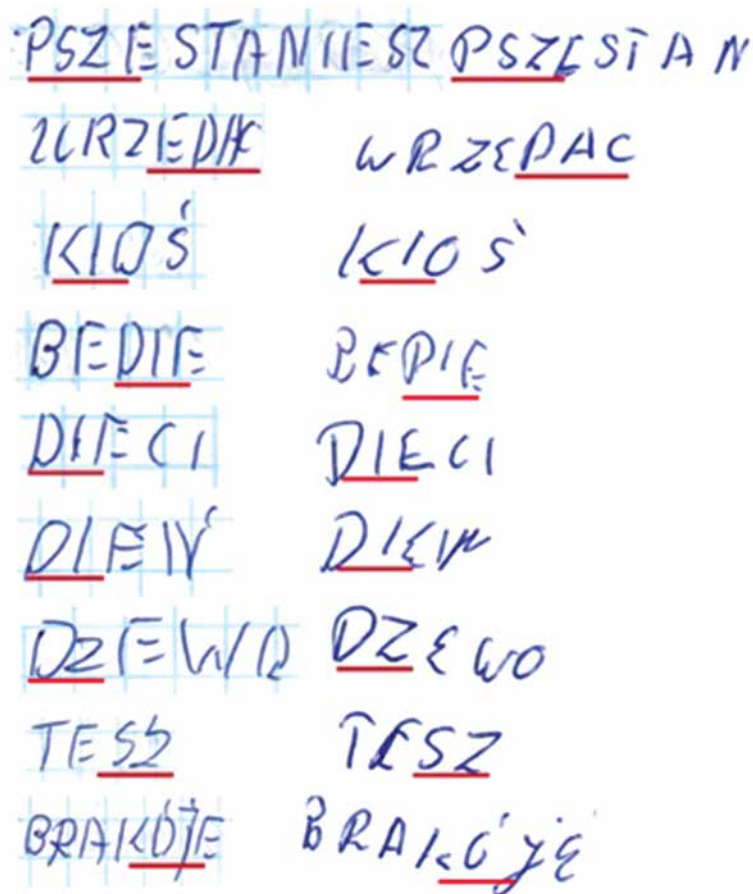 PSZESTANIESZ PSZESTAN
URZEDAC WRZEDAC
KIOŚ KIOŚ
BEDIE BEDIE
DIECI DIECI
DIEŃ DIEŃ
DZEWO DZEWO
TESZ TESZ
BRAKÓJE BRAKÓJE